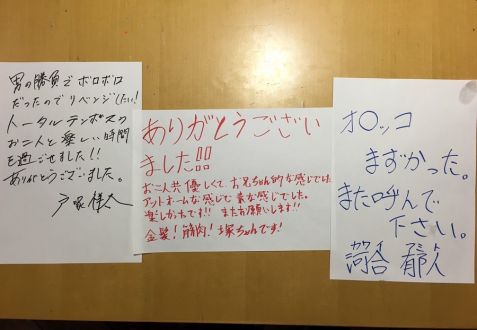 男の勝負でボロボロ
だったのでリベンジしたい!
トータルテンボスの
お二人と楽しい時間
を過ごせました!!
ありがとうございました。
戸塚 様太
ありがとうござい
ました!!!
お二人共優しくて お兄ちゃん的な感じでした
アットホームな感じで 素な感じでした。
楽しかったです!! またお願いします!!
金髪!筋肉!塚ちゃんです!
オ○ッコ
まずかった。
また呼んで
下さい。
カワイ フミト
河合 郁人